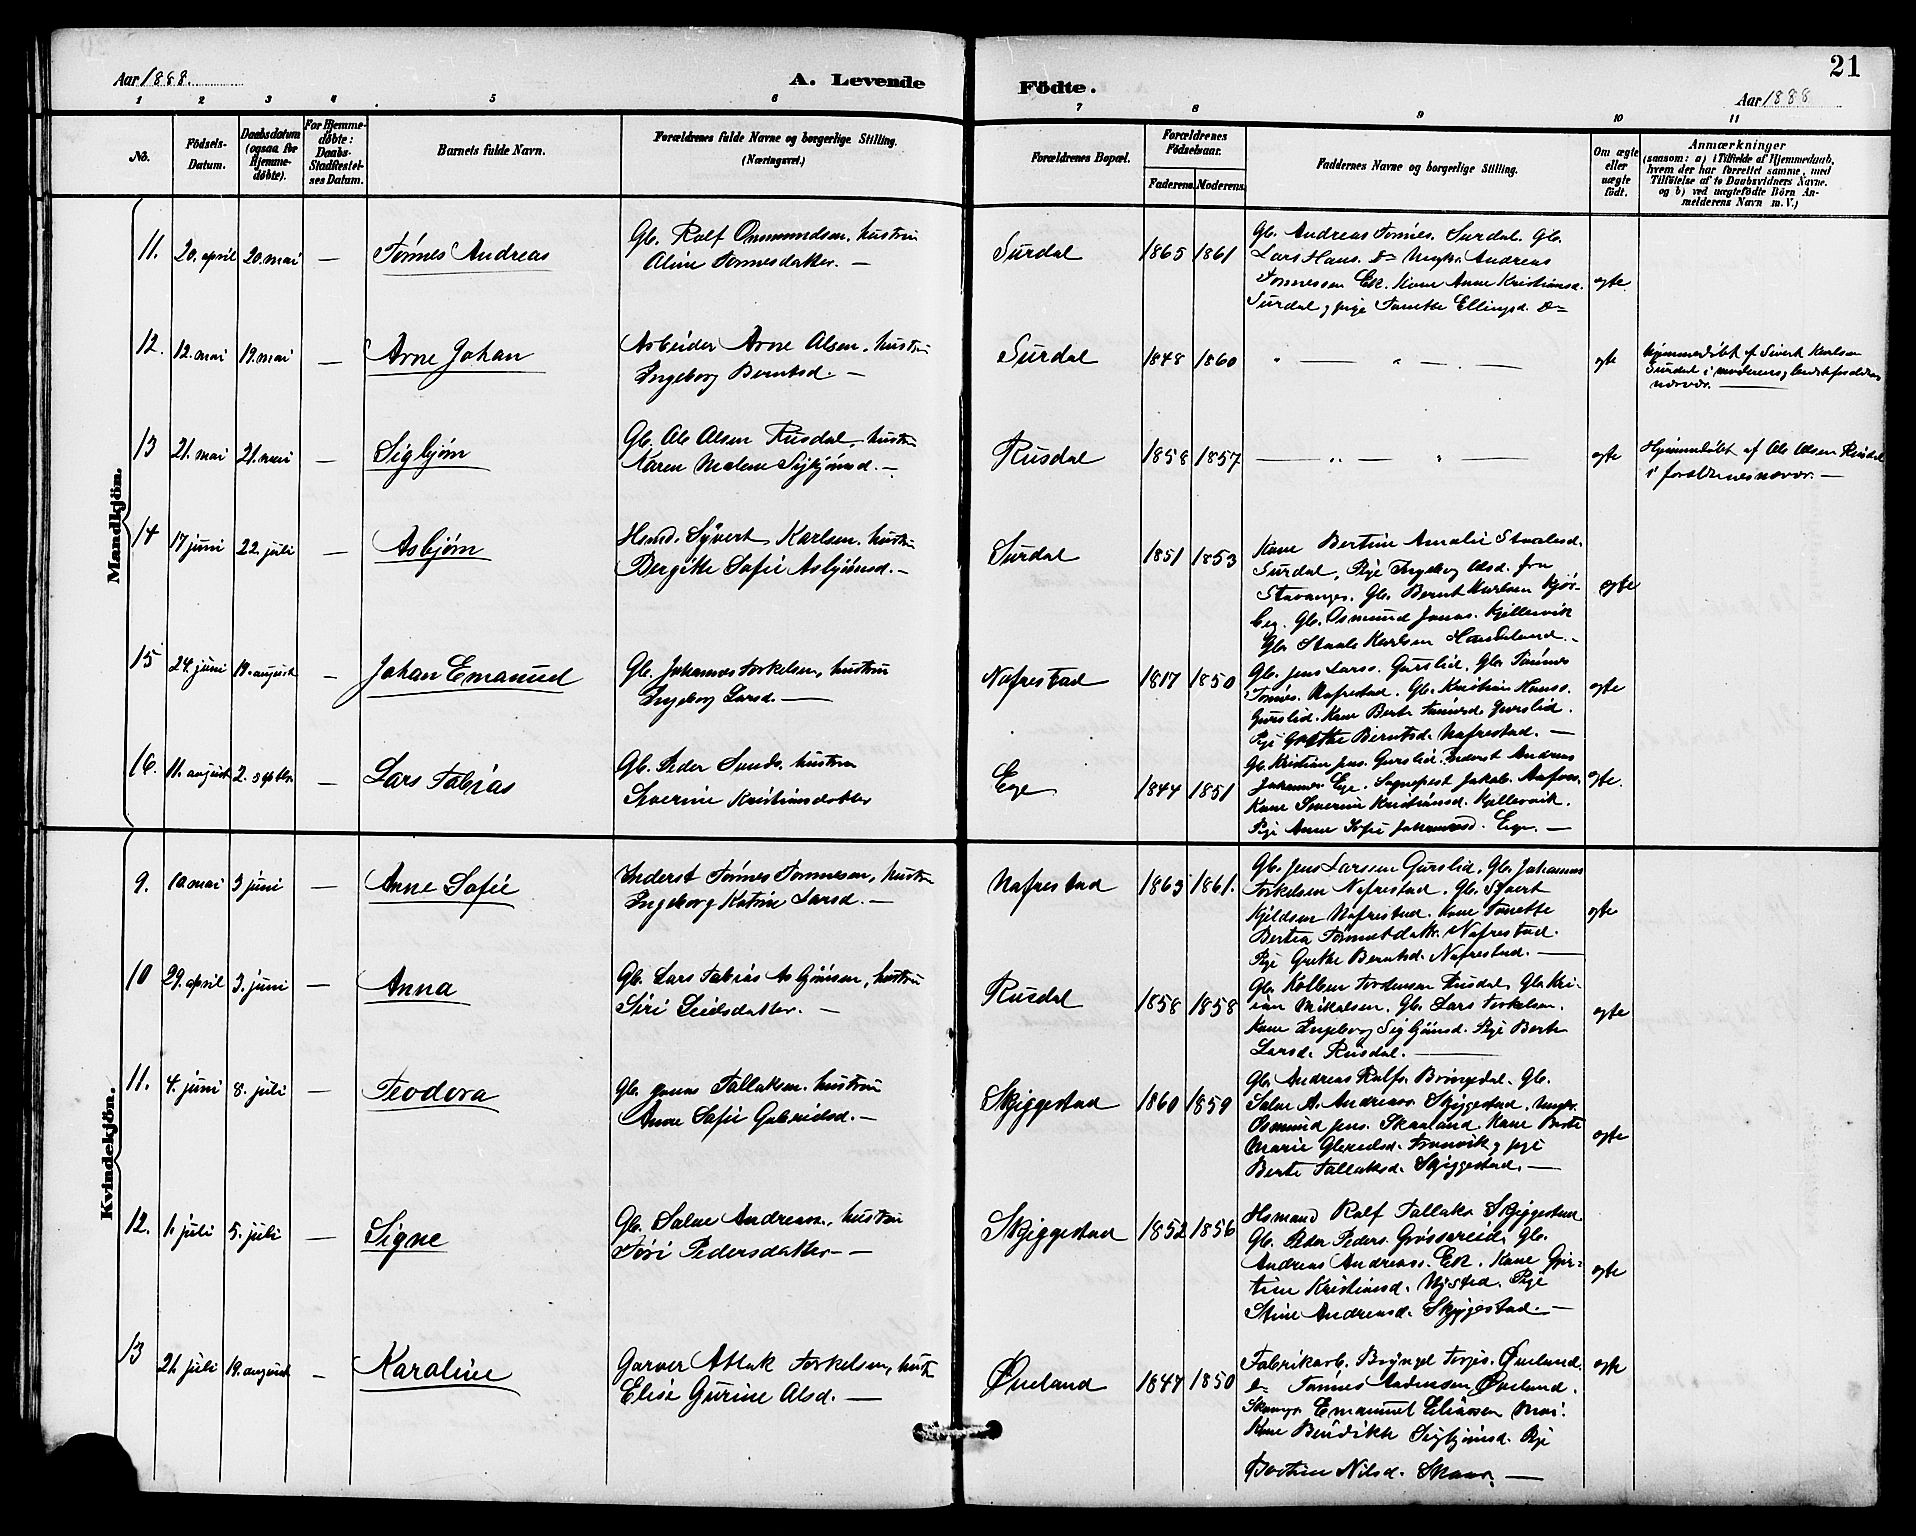 21
Aar 1888.
A. Levende Födte.
Aar 1888
1 2 3 4 5 6 7 8 9 10 11
No.
Födsels-Datum.
Daabsdatum (ogsaa for Hjemme-döbte).
For Hjemme-döbte: Daabs-Stadfæstel-ses Datum.
Barnets fulde Navn.
Forældrenes fulde Navne og borgerlige Stilling. (Næringsvei.)
Forældrenes Bopæl.
Forældrenes Födselsaar.
Faderens. Moderens.
Faddernes Navne og borgerlige Stilling.
Om ægte eller uægte födt.
Anmærkninger
(saasom: a) i Tilfælde af Hjemmedaab,
hvem der har forrettet samme, med
Tilföielse af to Daabsvidners Navne.
og b) ved uægtefödte Börn An-
melderens Navn m. V.)
Mandkjön.
11. 20. april 20. mai — Tønnes Andreas
Gb. Rolf Ommundsen, hustru
Aline Tønnesdatter. —
Surdal 1865 1861
Gb. Andreas Tønnes. Surdal. Gb.
Lars Hans. do Ungkr. Andreas
Tønnessen Eik. Kone Anne Kristiansd.
Surdal, pige Tonette Ellingsd. do
egte
12. 12. mai 19. mai — Arne Johan
Arbeider Arne Olsen, hustru
Ingeborg Berntsd. —
Surdal 1848 1860
" — " — . —
egte
Hjemmedøbt af Sivert Karlsen
Surdal i moderens
nærvær. —
13 21. mai 21. mai — Sigbjørn
Gb. Ole Olsen Rusdal, hustru
Karen Malene Sigbjørnsd. —
Rusdal 1858 1857
— " — " —
egte
Hjemmedøbt af Ole Olsen Rusdal
i forældrenes nærvær. —
14 17 juni 22. juli — Asbjørn
Hsmd. Syvert Karlsen, hustru
Bergitte Sofie Asbjørnsd. —
Surdal 1851 1853
Kone Bertine Amalie Staalesd.
Surdal, Pige Ingeborg Olsd. fra
Stavanger. Gb. Bernt Karlsen Kjør-
. Gb. Osmund Jonas. Kjellesvik
Gb. Staale Karlsen Haadeland. —
egte
15 24. juni 19. august — Johan Emanuel
Gb. Johannes Torkelsen, hustru
Ingeborg Larsd. —
Nafrestad 1817 1850
Gb. Jens Larss. Gurslid. Gb. Tønnes
Tønnes. Nafrestad. Gb. Kristian Hanss.
Gurslid. Kone Berte Gurslid.
Pige Grethe Berntsd. Nafrestad. —
egte
16. 11. august 2. septbr. — Lars Tobias
Gb. Peder Sunds. hustru
Severine Kristiansdatter
Ege 1844 1851
Gb. Kristian Jens. Gurslid. Inderst Andreas
Johannes. Ege. Sogneprest Jakob.
Kone Severine Kristiansd. Kjellesvik.
Pige Anne Sofie Johannesd. Ege. —
egte.
Kvindekjön.
9. 10 mai 3 juni — Anne Sofie
Inderst Tønnes Tønnesen, hustru
Ingeborg Katrine Larsd. —
Nafrestad 1863 1861.
Gb. Jens Larssen Gurslid, Gb. Johannes
Torkelsen Nafrestad, Gb. Syvert
Kjeldsen Nafrestad. Kone Tonette
Bertea Tønnesdattr. Nafrestad.
Pige Grethe Berntsd. Nafrestad. —
egte
10 29. april 3. juni — Anna
Gb. Lars Tobias Asbjørnsen, hustru
Siri Leidsdatter. —
Rusdal 1858 1858
Gb. Kolben Tordensen Rusdal, Gb. Kri-
Mikkelsen. Gb. Lars Torkelsen.
Kone Ingeborg Sigbjørnsd. Pige Berte
Larsd. Rusdal. —
egte
11. 4. juni 8. juli — Teodora
Gb. Jonas Tallaksen, hustru
Anne Sofie Gabrielsd. —
Skjeggestad 1860 1859
Gb. Andreas Rolfs. Bringedal. Gb.
Salve A. Andreass. Skjeggestad. Ungkr.
Osmund Jens. Skaaland. Kone Berte
Marie Tronvik, pige
Berte Tallaksd. Skjeggestad. —
egte
12. 1. juli 5. juli — Signe
Gb. Salve Andreas., hustru
Siri Pedersdatter —
Skjeggestad 1852 1856
Hsmand Rolf Tallaks Skjeggestad
Gb. Peder Peders. Grøssereid. Gb.
Andreas Andreass. Eik. Kone Gjer-
tine Kristiansd. . Pige
Stine Andreasd. Skjeggestad. —
egte
13 21. juli 19. august — Karoline
Garver Atlak Torkelsen, hustr.
Elise Gurine Olsd. —
Øveland 1847 1850
Fabrikarb. Bryngel Torjes. Øveland.
do Tønnes Andersen Øveland.
Emanuel Eliassen Moi.
Kone Bendikte Sigbjørnsd. Pige
Nilsd. Skaar. —
egte